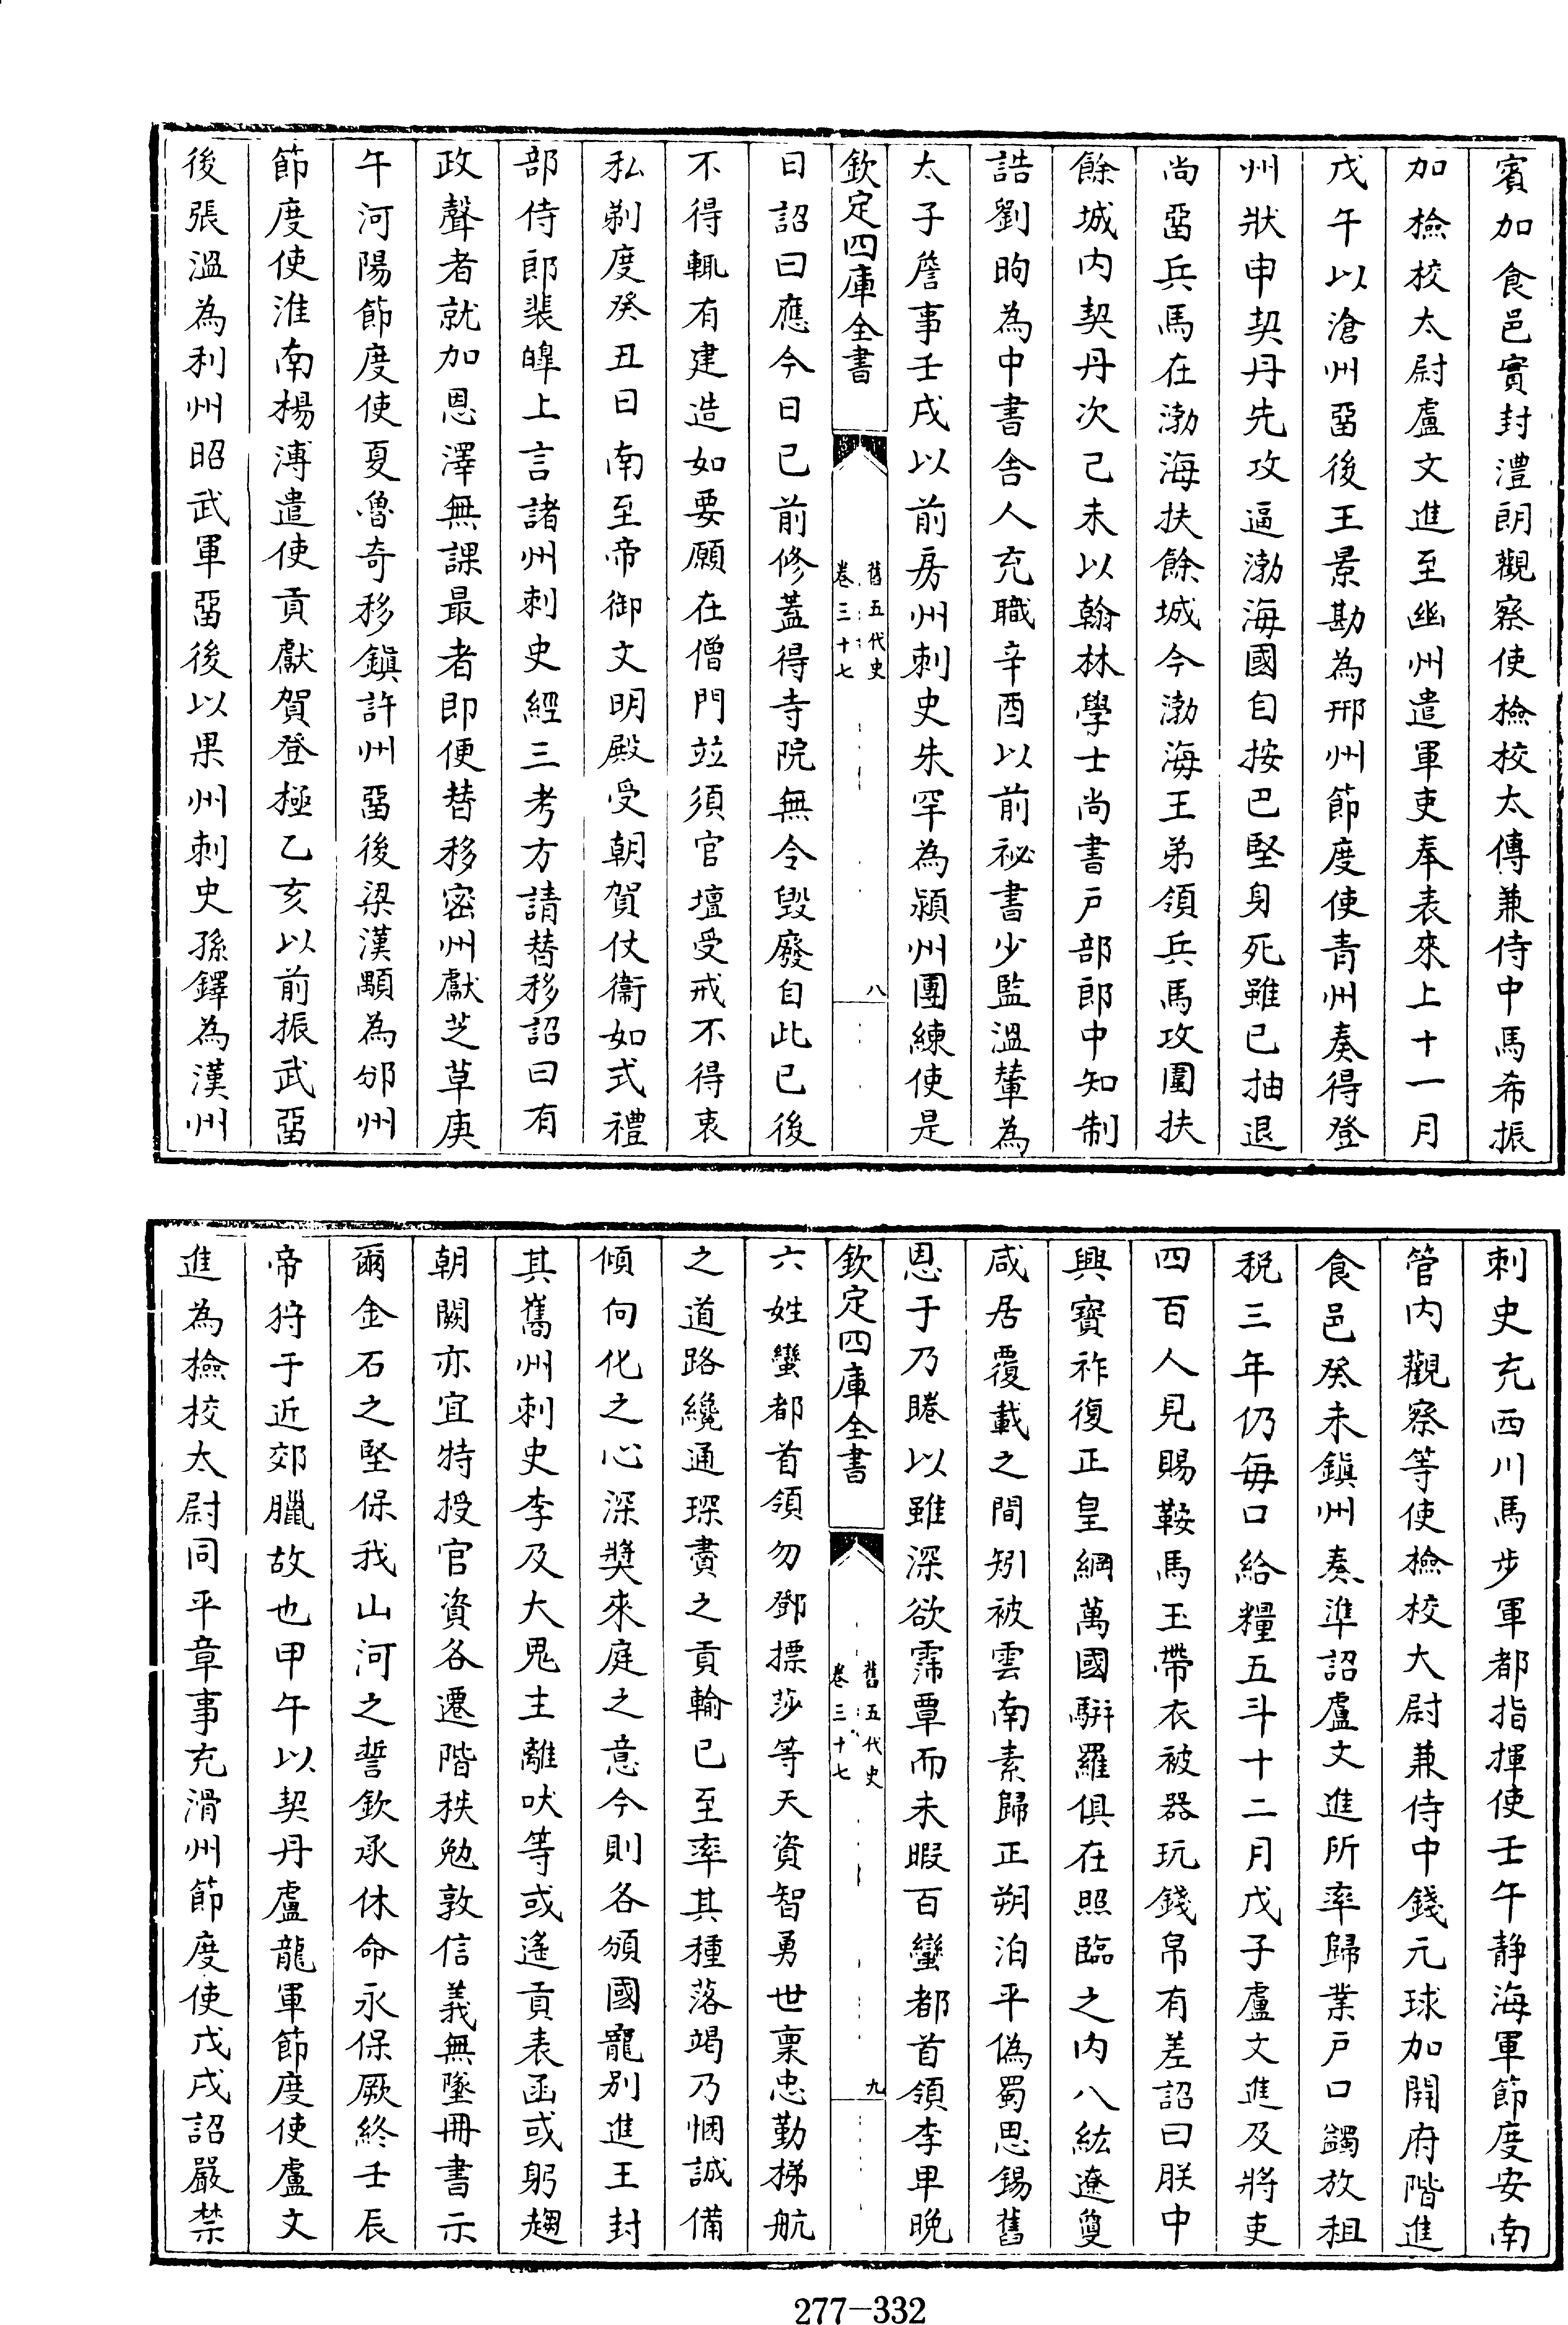 賓加食邑實封澧朗觀察使檢校太傅兼侍中馬希振
加檢校太尉盧文進至幽州遣軍吏奉表來上十一月
戊午以滄州畱後王景勘為邢州節度使青州奏得登
州狀申契丹先攻逼渤海國自按巴堅身死雖已抽退
尚畱兵馬在渤海扶餘城今渤海王弟領兵馬攻圍扶
餘城内契丹次己未以翰林學士尚書戸部郎中知制
誥劉昫為中書舍人充職辛酉以前祕書少監溫輦為
太子詹事壬戌以前房州刺史朱罕為潁州團練使是
欽定四庫全書
舊五代史
卷三十七
八
日詔曰應今日已前修蓋得寺院無令毁廢自此已後
不得輒有建造如要願在僧門竝須官壇受戒不得衷
私剃度癸丑日南至帝御文明殿受朝賀仗衞如式禮
部侍郎裴皥上言諸州刺史經三考方請替移詔曰有
政聲者就加恩澤無課最者即便替移密州獻芝草庚
午河陽節度使夏魯奇移鎮許州畱後梁漢顒為邠州
節度使淮南楊溥遣使貢獻賀登極乙亥以前振武畱
後張溫為利州昭武軍畱後以果州刺史孫鐸為漢州
刺史充西川馬步軍都指揮使壬午靜海軍節度安南
管内觀察等使檢校大尉兼侍中錢元球加開府階進
食邑癸未鎮州奏準詔盧文進所率歸業戸口蠲放租
稅三年仍每口給糧五斗十二月戊子盧文進及將吏
四百人見賜鞍馬玉帶衣被器玩錢帛有差詔曰朕中
興寶祚復正皇綱萬國駢羅俱在照臨之内八紘遼夐
咸居覆載之間矧被雲南素歸正朔洎平偽蜀思錫舊
恩于乃睠以雖深欲霈覃而未暇百蠻都首領李卑晚
欽定四庫全書
舊五代史
卷三十七
九
六姓蠻都首領勿鄧摽莎等天資智勇世稟忠勤梯航
之道路纔通琛賮之貢輸已至率其種落竭乃悃誠備
傾向化之心深奬來庭之意今則各頒國寵别進王封
其舊州刺史李及大鬼主離吠等或遙貢表函或躬趨
朝闕亦宜特授官資各遷階秩勉敦信義無墜冊書示
爾金石之堅保我山河之誓欽承休命永保厥終壬辰
帝狩于近郊臘故也甲午以契丹盧龍軍節度使盧文
進為檢校太尉同平章事充滑州節度使戊戌詔嚴禁
277—332